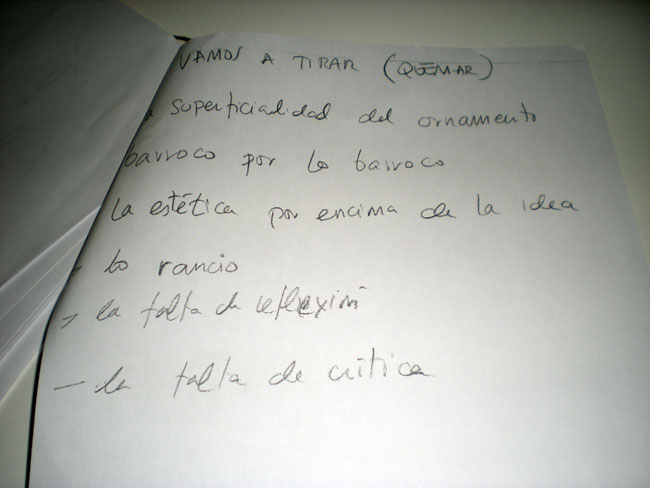 VAMOS A TIRAR (QUEMAR)
superficialidad del ornamento
barroco por lo barroco
la estética por encima de la idea
- lo rancio
- la falta de reflexión
- la falta de crítica